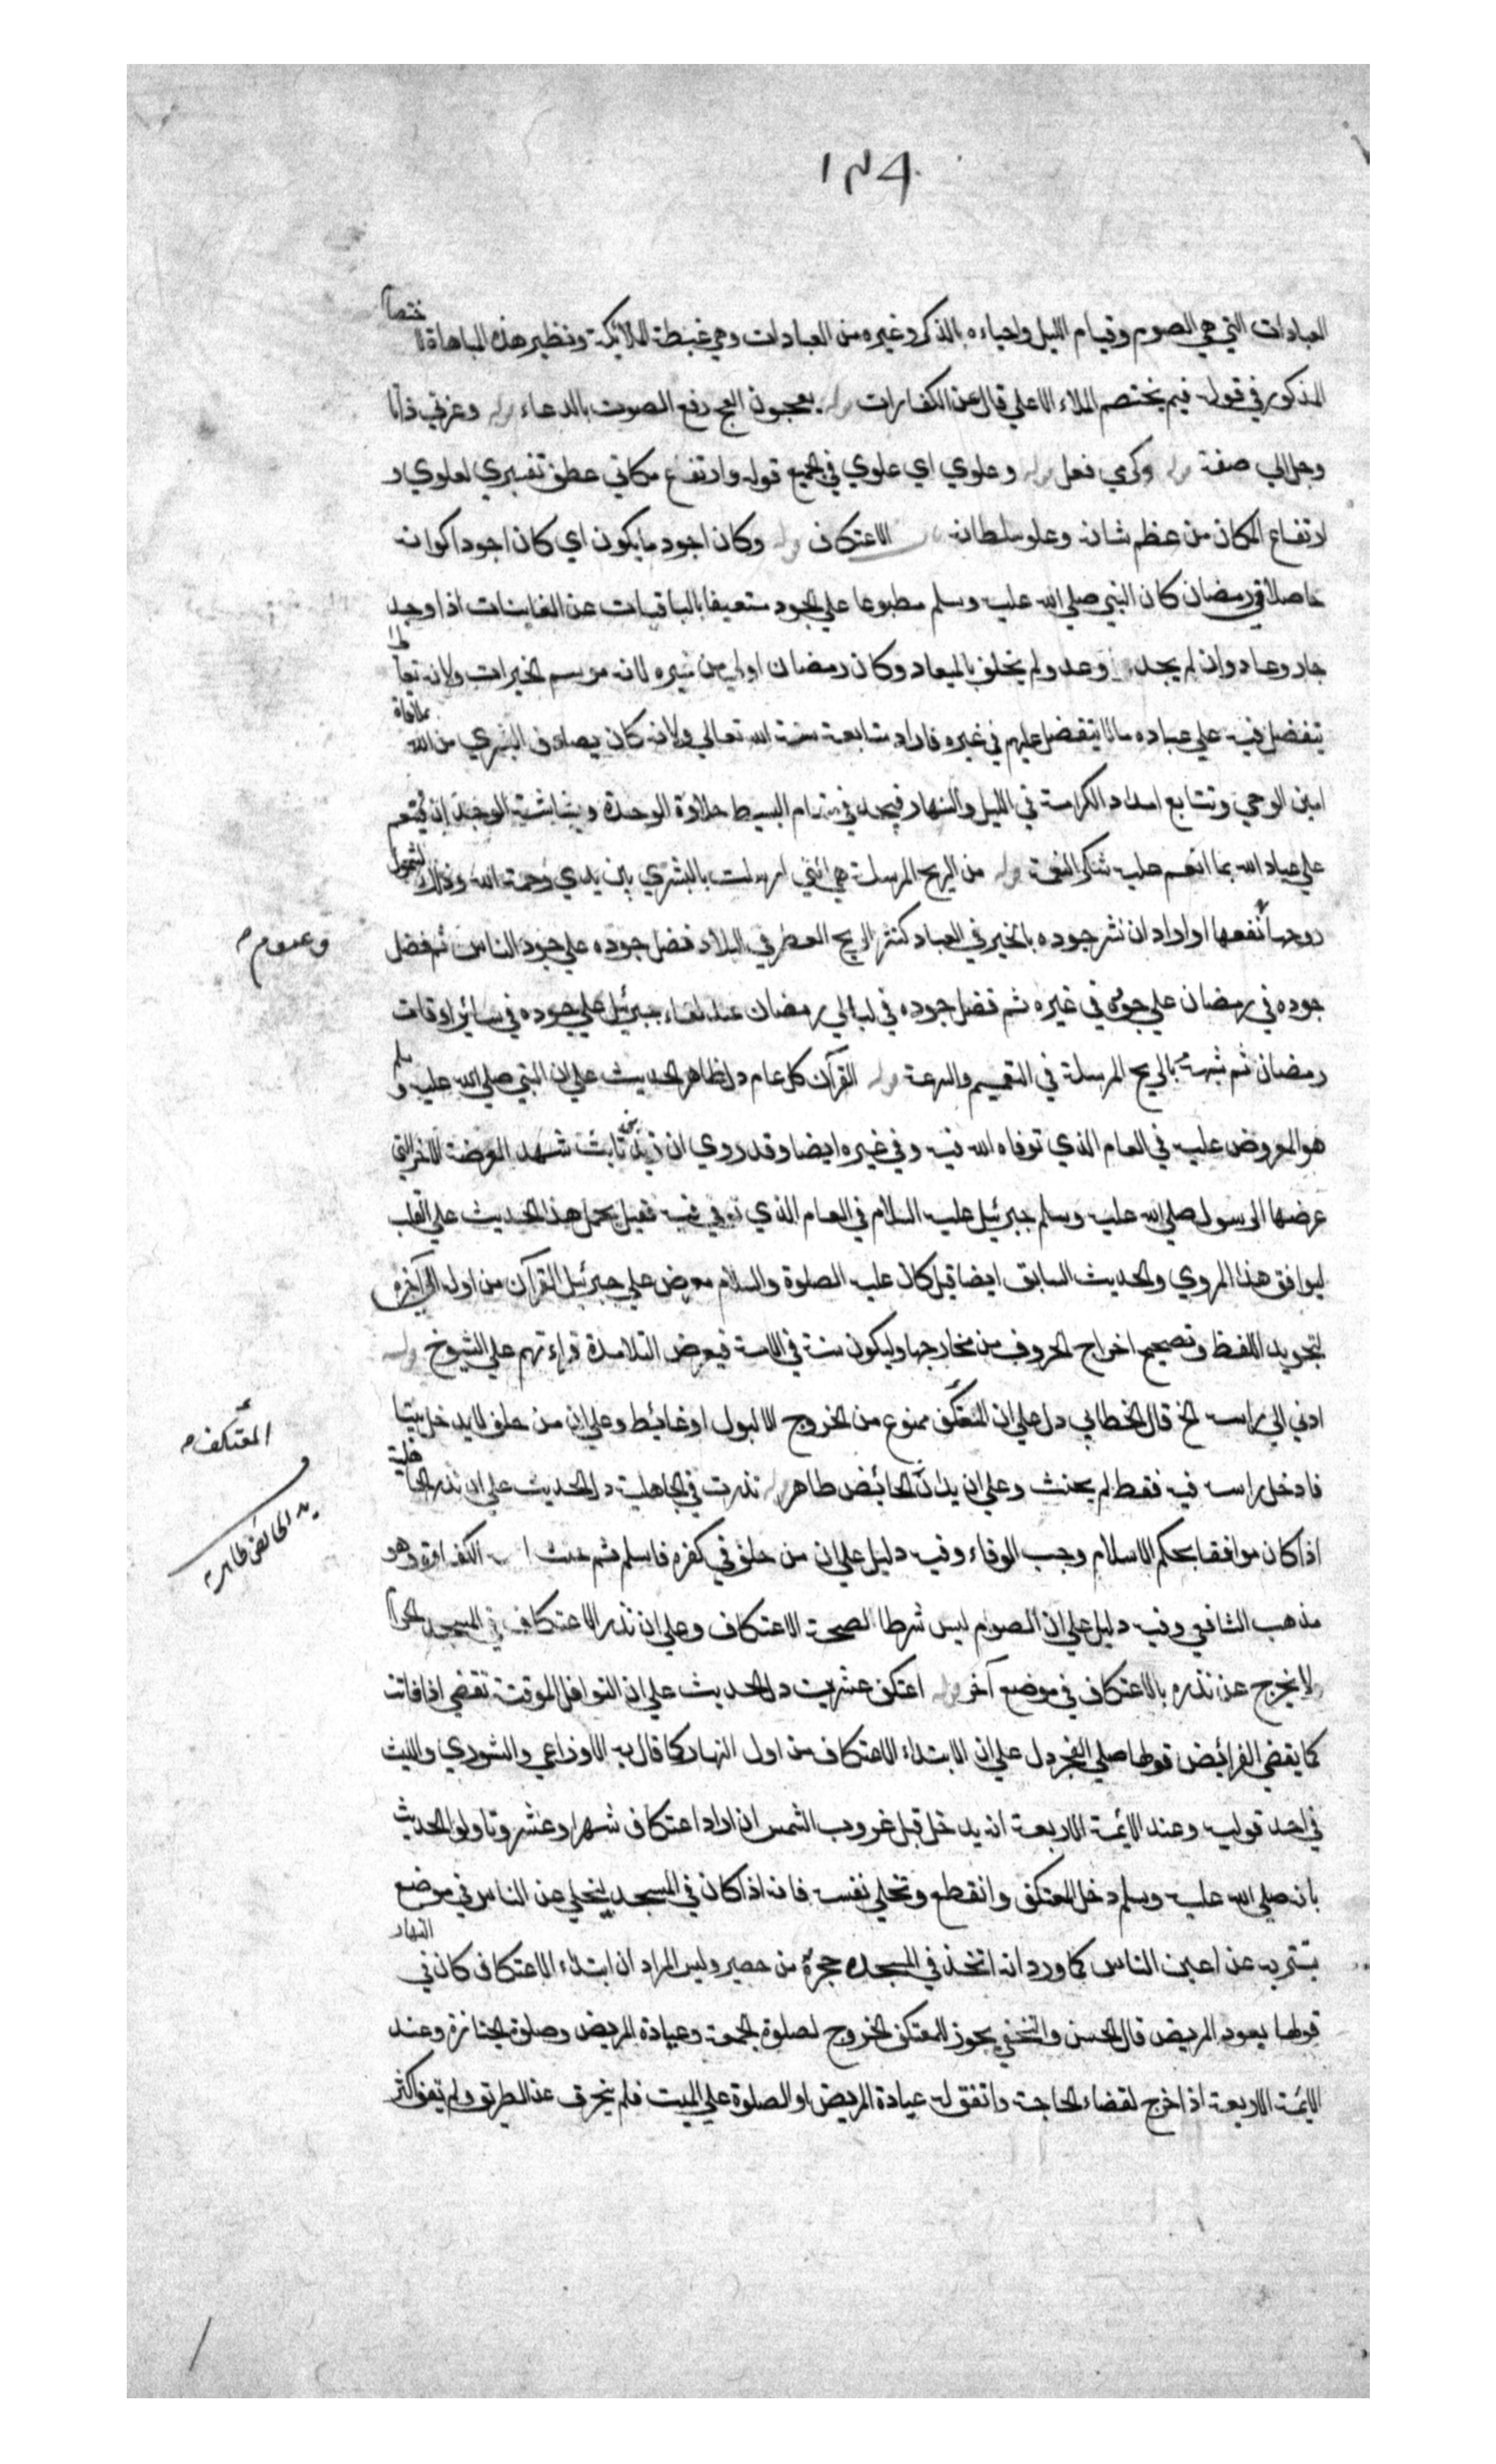 ١٣٩
العبادات التي هي الصوم وقيام الليل واحياءه بالذكر وغيره من العبادات وهي غبطة الملائكة ونظير هذه المباهاة الاختصام
المذكور في قوله فيم يختصم الملاء الاعلي قال عن الكفارات قوله يعجون العج رفع الصوت بالدعاء قوله وعزتي ذاتا
وجلالي صفة قوله وكرمي فعل قوله وعلوي اي علوي في الجميع قوله وارتفاع مكاني عطف تفسيري لعلوي و
ارتفاع المكان من عظم شانه وعلو سلطانه باب الاعتكاف قوله وكان اجود ما يكون اي كان اجود اكوانه
حاصلا في رمضان كان النبي صلي الله عليه وسلم مطبوعا علي الجود مستعيفا بالباقيات عن الفانيات اذا وجد
جاد وعاد وان لم يجد وعد ولم يخلف بالميعاد وكان رمضان اولي من غيره لانه موسم الخيرات ولانه تعالي
يتفضل فيه علي عباده مالا يتفضل عليهم في غيره فاراد متابعة سنة الله تعالي ولانه كان يصادف البشري من الله بملاقاة
امين الوحي وتتابع امداد الكرامة في الليل والنهار فيجد في مقام البسط حلاوة الوجد وبشاشة الوجد ان ينعم
علي عباد الله بما انعم عليه شكر النعمة قوله من الريح المرسلة هي التي ارسلت بالبشري بين يدي رحمة الله وذلك لشمول
روحها وعموم نفعها او اراد ان نشر جوده بالخير في العباد كنشر الريح العطر في البلاد فضل جوده علي جود الناس ثم فضل
جوده في رمضان علي جوده في غيره ثم فضل جوده في ليالي رمضان عند لقاء جبرئيل علي جوده في سائر اوقات
رمضان ثم شبهه بالريح المرسلة في التعميم والسرعة قوله القرآن كل عام دل ظاهر الحديث علي ان النبي صلي الله عليه وسلم
هو المعروض عليه في العام الذي توفاه الله فيه وفي غيره ايضا وقد روي ان زيد بن ثابت شهد العرضة الاخر التي
عرضها الرسول صلي الله عليه وسلم جبرئيل عليه السلام في العام الذي توفي فيه فقيل يحمل هذا الحديث علي القلب
ليوافق هذا المروي والحديث السابق ايضا قيل كان عليه الصلوة والسلام معرض علي جبرئيل القرآن من اوله الي آخره
لتجويد اللفظ وتصحيح اخراج الحروف من مخارجها وليكون سنة في الامة فيعرض التلامذة قراءتهم علي الشيوخ قوله
ادني الي راسه الخ قال الخطابي دل علي ان المعتكف ممنوع من الخروج الا لبول او غائط وعلي ان من حلف لا يدخل بيتا
فادخل راسه فيه فقط لم يحنث وعلي ان بدن الحائض طاهر قوله نذرت في الجاهلية دل الحديث علي ان نذر الجاهلية
اذا كان موافقا بحكم الاسلام وجب الوفاء وفيه دليل علي ان من حلف في كفره فاسلم فثم حنث الكفارة وهو
مذهب الشافعي وفيه دليل علي ان الصوم ليس شرطا لصحة الاعتكاف وعلي ان نذر الاعتكاف في المسجد الحرام
لا يخرج عن نذره بالاعتكاف في موضع آخر قوله اعتكف عشرين دل الحديث علي ان النوافل الموقتة تقضي اذا فاتت
كما يقضي الفرائض قولها صلي الفجر دل علي ان الابتداء الاعتكاف من اول النهار كما قال به الاوزاعي والثوري والليث
في احد قوليه وعند الائمة الاربعة انه يدخل قبل غروب الشمس ان اراد اعتكاف شهر او عشر وتاولوا الحديث
بانه صلي الله عليه وسلم دخل المعتكف وانقطع وتخلي نفسه فانه اذا كان في المسجد يتخلي عن الناس في موضع
يتستر به عن اعين الناس كما ورد انه اتخذ في المسجد حجرة من حصير وليس المراد ان ابتداء الاعتكاف كان في النهار
قولها يعود المريض قال الحسن والنخعي يجوز للمعتكف الخروج لصلوة الجمعة وعيادة المريض وصلوة الجنازة وعند
الائمة الاربعة اذا خرج لقضاء الحاجة واتفق له عيادة المريض او الصلوة علي الميت فلم ينحرف عن الطريق ولم يقف اكثر
وعموم م
المعتكف م
يد الحائض طاهرة